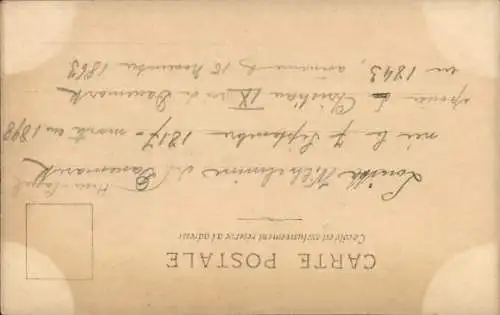 CARTE POSTALE
Ce côté est exclusivement réservé à l'adresse
Hesse-Cassel
Louise Wilhelmine de Danemark
née le 7 Septembre 1817 - morte en 1898
épouse de Christian IX roi de Danemark
en 1843, 15 Novembre 1863